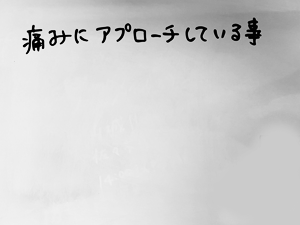 痛みにアプローチしている事